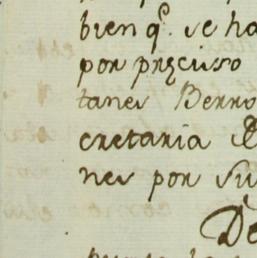 bien q.^e se ha
por preciso
tanes Berro
cretaria
nes por su
De